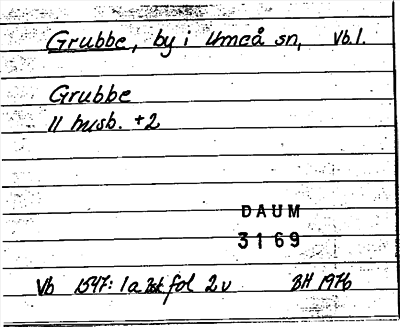 Grubbe, by i Umeå sn, Vb.l.
Grubbe
11 husb. +2
DAUM
3169
Vb 1547: 1a fol 2v BH 1976